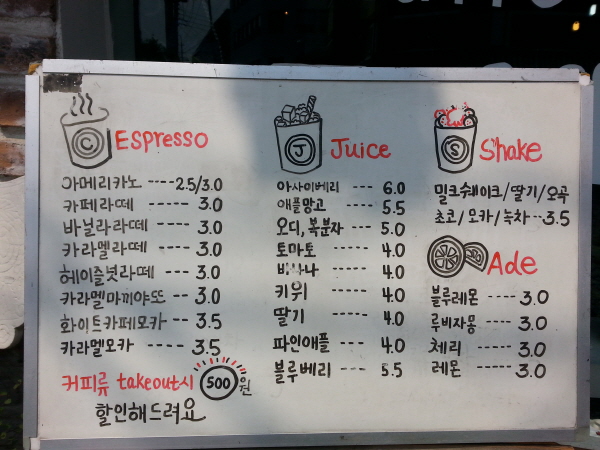 C Espresso
아메리카노 ---- 2.5/3.0
카페라떼 --- 3.0
바닐라라떼 --- 3.0
카라멜라떼 --- 3.0
헤이즐넛라떼 --- 3.0
카라멜마끼야또 -- 3.0
화이트카페모카 -- 3.5
카라멜모카 --- 3.5
커피류 takeout시 500원
할인해드려요
J Juice
아사이베리 --- 6.0
애플망고 ---- 5.5
오디, 복분자 --- 5.0
토마토 ----- 4.0
바나나 ---- 4.0
키위 ----- 4.0
딸기 ----- 4.0
파인애플 --- 4.0
블루베리 --- 5.5
S Shake
밀크쉐이크/딸기/오곡
초코/모카/녹차--3.5
Ade
블루레몬 ----- 3.0
루비자몽 ---- 3.0
체리 ----- 3.0
레몬 ----- 3.0